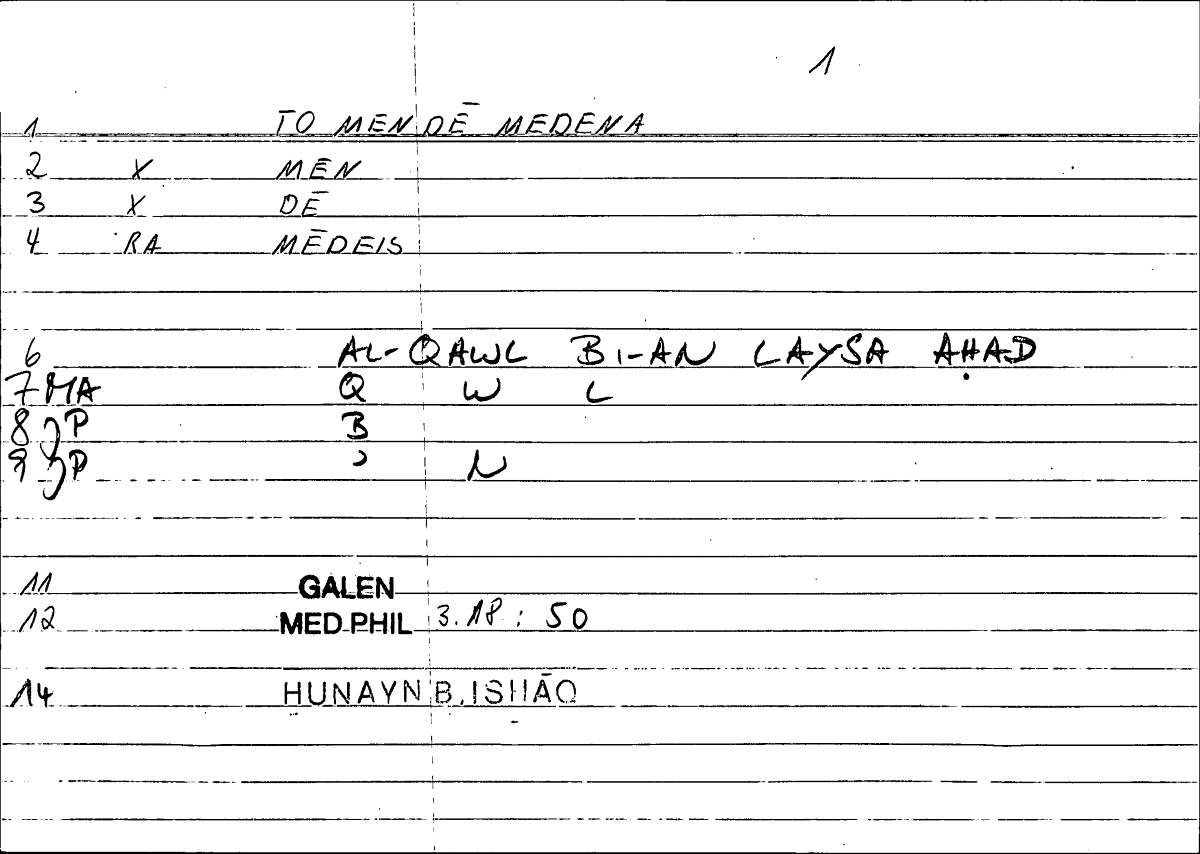 1
1 TO MEN DĒ MEDENA
2 X MEN
3 X DĒ
4 RA MĒDEIS
6 AL-QAWL BI-AN LAYSA AḤAD
7 MA Q W L
8 JP B
9 JP ʾ N
11 GALEN
12 MED.PHIL 3.18 : 50
14 HUNAYN B. ISHĀQ